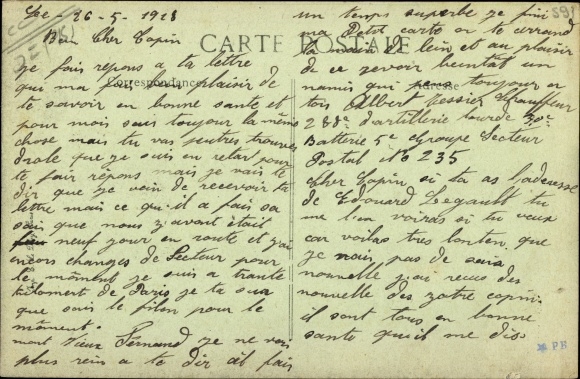 Le - 26-5-1918
Bien Cher Copin
CARTE POSTALE
Correspondance
Adresse
je fais répons a ta lettre
qui ma fai bien plaisir de
te savoir en bonne santé et
pour mois sans toujour la même
chose mais tu vas peutres trouves
drole que je suis en retar pour
te fair répons mais je vais te
dir que je vien de recevoir ta
lettre mais ce qu-il a fais sa
sais que nous n'avont était
neuf jour en route et j'ai
encors changes de Secteur pour
le môment je suis a trante
kilomert de Paris je ta sur
que sais le filon pour le
môment.
mont Vieux Fernand je ne vois
plus rein a te dir cit fais
un temps superbe je fini
ma Petit carte en te cerrand
la main de loin et au plaisir
de ce revoir beintot un
namis qui pens toujour a
tois Albert Tessier Chauffeur
288e d'artilerie lourde 30e
Batterie 5e Groupe Secteur
Postal No 235
Cher Copin si ta as ladresse
de Edouard Legault tu
me l'en voiras si tu veux
car voilas tres lonten que
je nais pas de sais
nouvelle j-ai recus des
nouvelle des zotre copin
il sont tous en bonne
sante qu'il me dis
PH